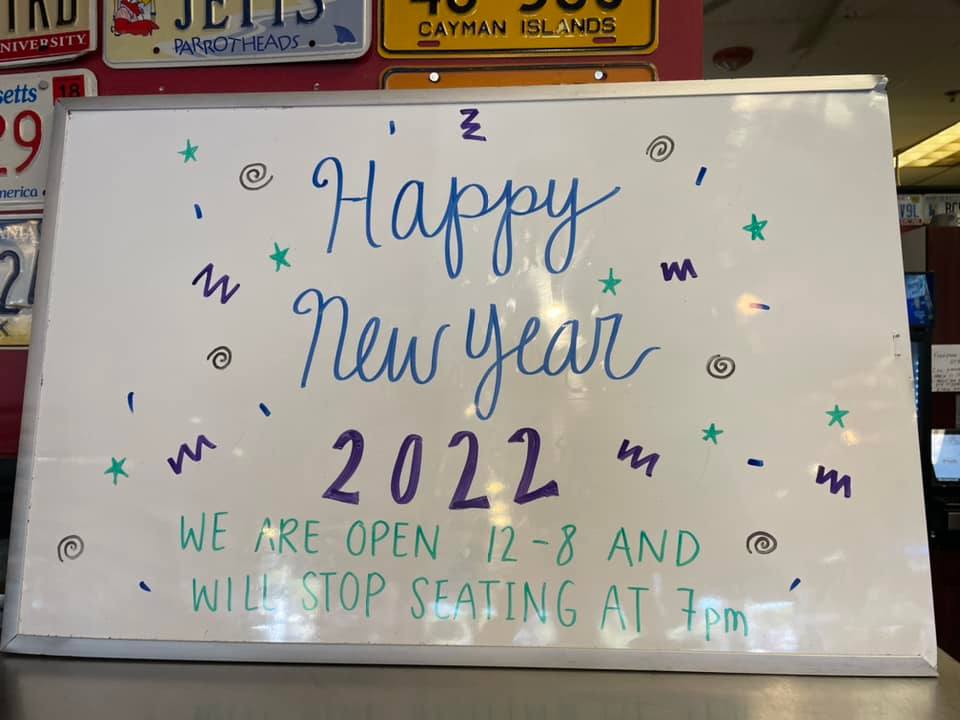 UNIVERSITY
JETTS
PARROTHEADS
CAYMAN ISLANDS
18
Happy
New Year
2022
WE ARE OPEN 12-8 AND
WILL STOP SEATING AT 7pm